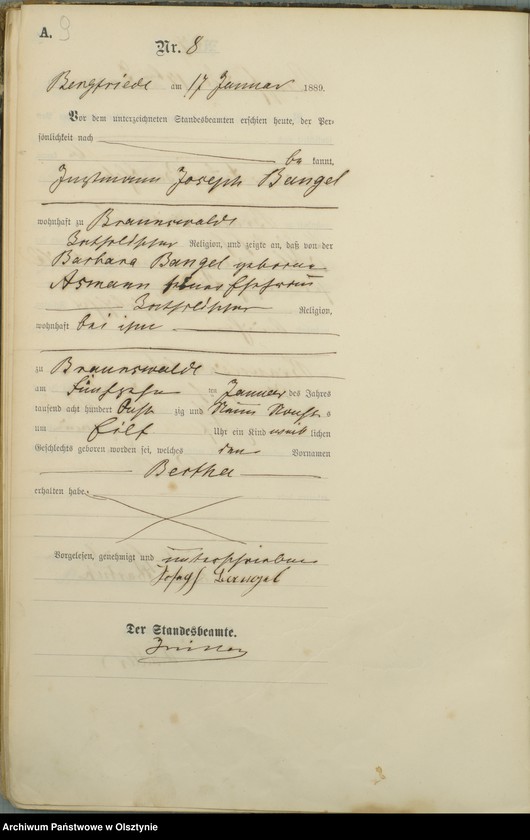 A. 9
Nr. 8
Bergfriede am 17 Januar 1889.
Vor dem unterzeichneten Standesbeamten erschien heute, der Per-
sönlichkeit nach
be kannt,
Joseph Bangel
wohnhaft zu Braunswalde
katholischer Religion, und zeigte an, daß von der
Barbara Bangel geborene
Asmann seiner Ehefrau
katholischer Religion,
wohnhaft bei ihm
zu Braunswalde
am fünfzehn ten Januar des Jahres
tausend acht hundert acht zig und neun
um Eilf Uhr ein Kind weib lichen
Geschlechts geboren worden sei, welches den Vornamen
Bertha
erhalten habe.
Vorgelesen, genehmigt und unterschrieben
Josef Bangel
Der Standesbeamte.
Archiwum Państwowe w Olsztynie